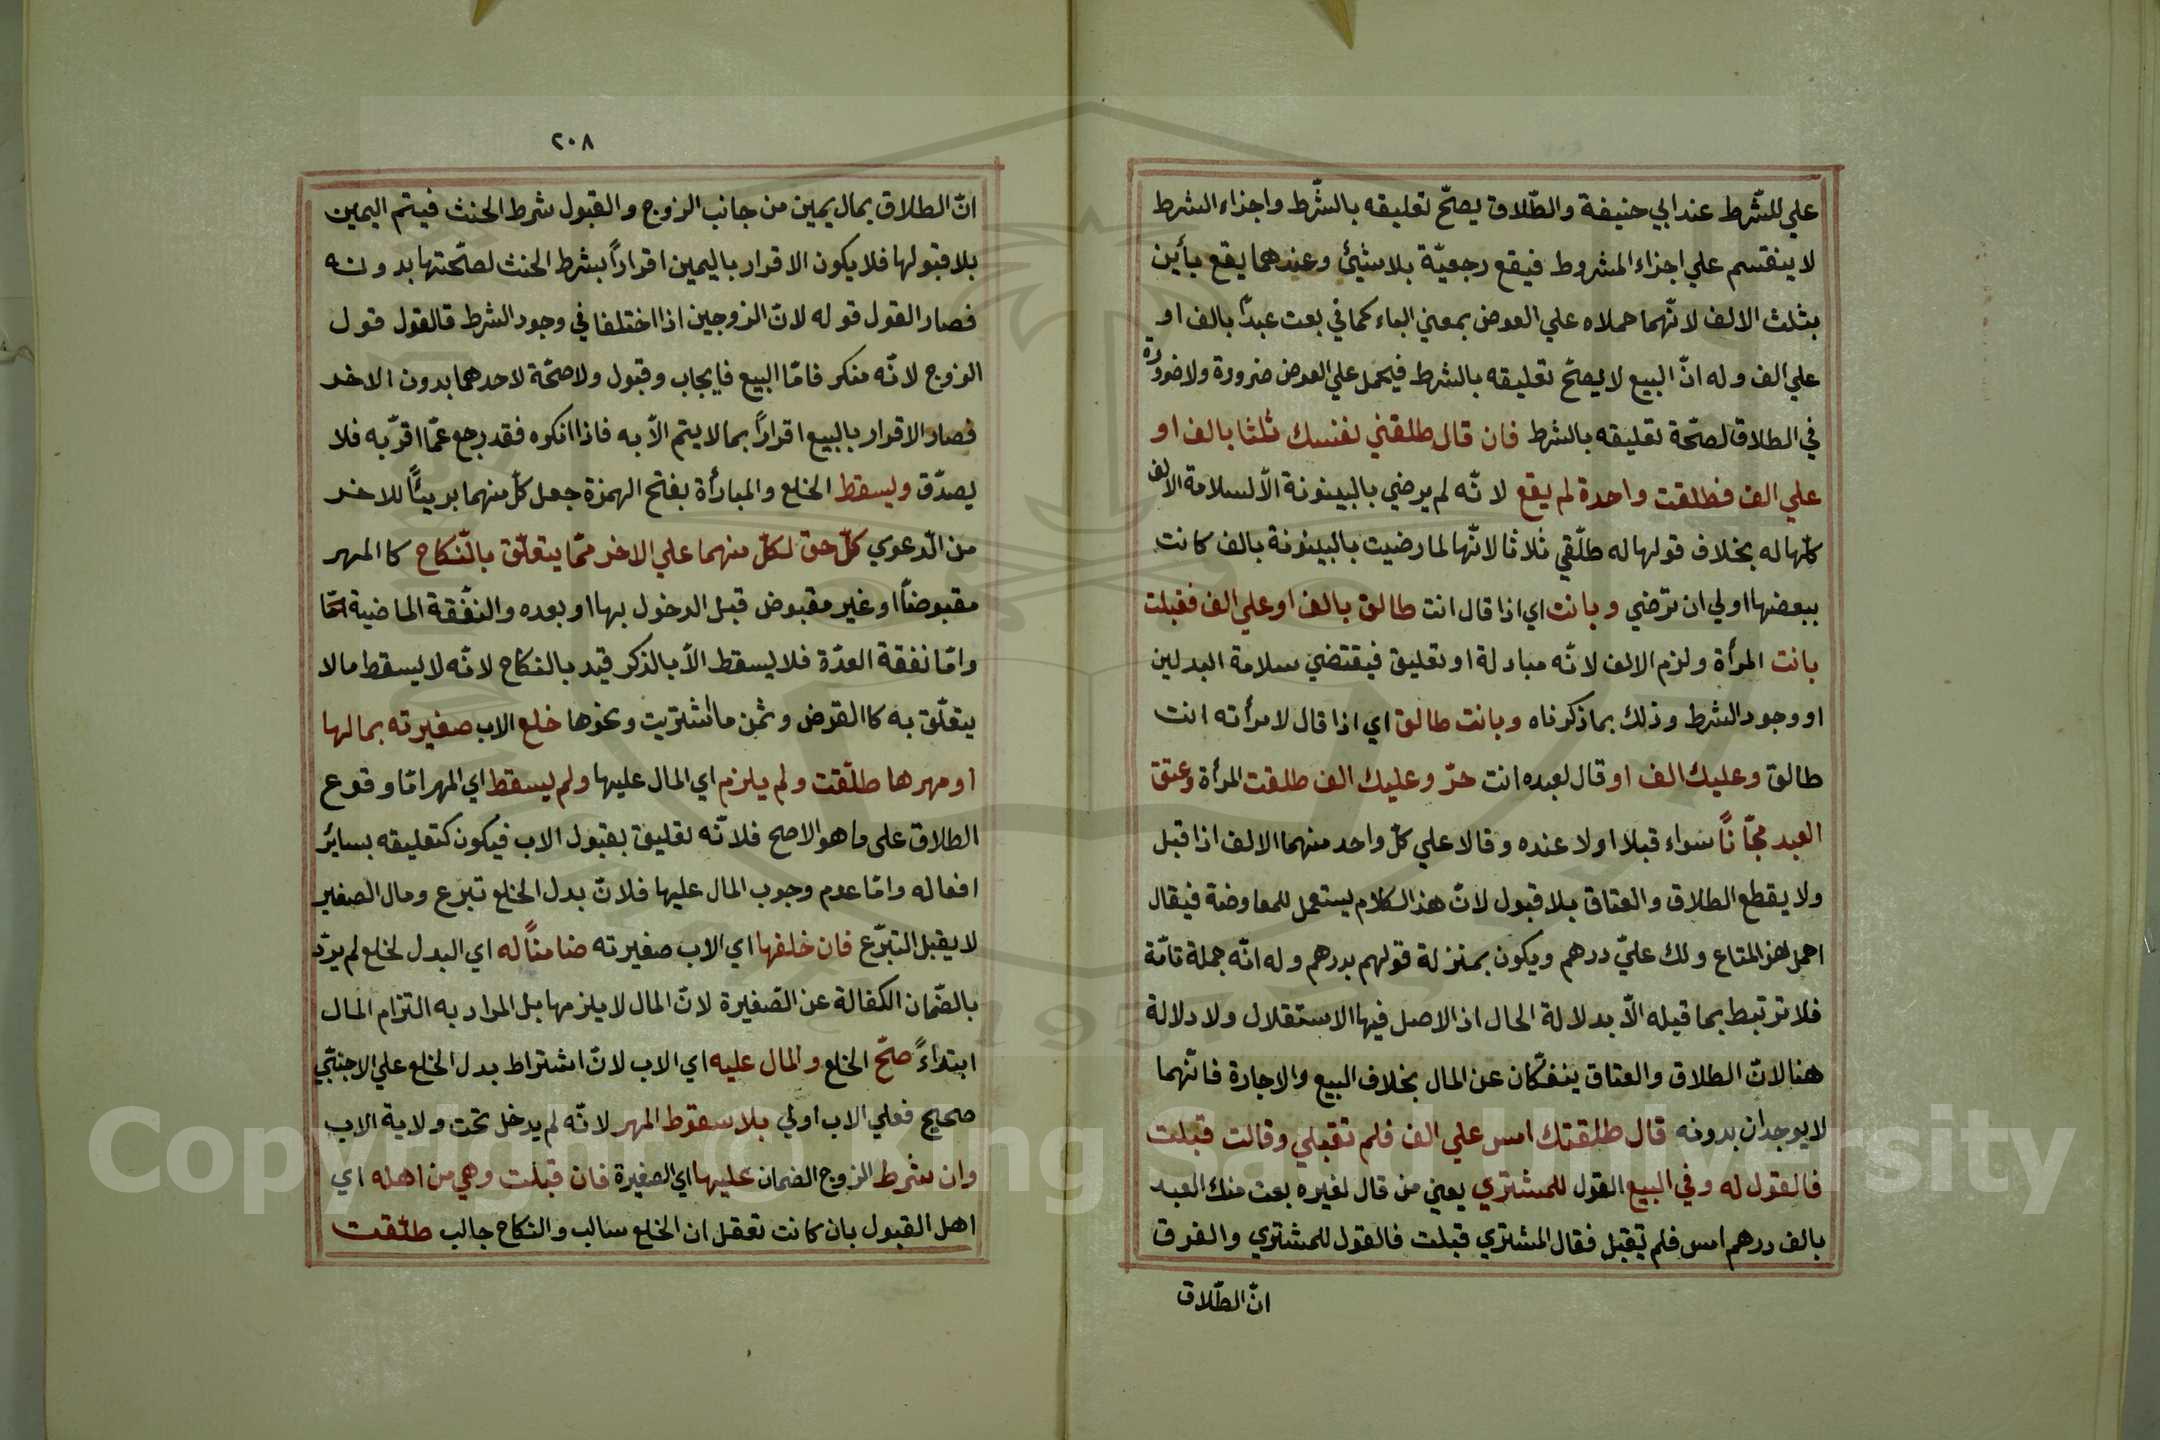 علي للشّرط عند ابي حنيفة والطّلاق يصحّ تعليقه بالشّرط واجزاء الشرط
لا ينقسم علي اجزاء المشروط فيقع رجعيّة بلا شئ وعندهما يقع باين
بثلث الالف لانّهما حملاه علي العوض بمعني الباء كما في بعت عبدًا بالف او
علي الف وله انّ البيع لا يصحّ تعليقه بالشرط فيحمل علي العوض ضرورة ولا ضرورة
في الطلاق لصحّة تعليقه بالشرط فان قال طلقني نفسك ثلثا بالف او
علي الف فطلقت واحدة لم يقع لانّه لم يرضي بالبينونة الّا لسلامة الالف
كلّها له بخلاف قولها له طلّقي ثلاثا لانّها لما رضيت بالبينونة بالف كانت
ببعضها اولي ان ترضي وبانت اي اذا قال انت طالق بالف او علي الف فقبلت
بانت المرأة ولزم الالف لانّه مبادلة او تعليق فيقتضي سلامة البدلين
او وجود الشرط وذلك بما ذكرناه وبانت طالق اي اذا قال لامرأته انت
طالق وعليك الف او قال لعبده انت حرّ وعليك الف طلقت المرأة وعتق
العبد مجّانًا سواء قبلا اولا عنده وقالا علي كلّ واحد منهما الالف اذا قبل
ولا يقطع الطلاق والعتاق بلا قبول لانّ هذ الكلام يستعمل للمعاوضة فيقال
احمل هذ المتاع ولك عليّ درهم ويكون بمنزلة قولهم بدرهم وله انّه جملة تامّة
فلا ترتبط بما قبله الّا بدلالة الحال اذ الاصل فيها الاستقلال ولا دلالة
هنا لانّ الطلاق والعتاق ينفكّان عن المال بخلاف البيع والاجارة فانّهما
لا يوجدان بدونه قال طلقتك امس علي الف فلم تقبلي وقالت قبلت
فالقول له وفي البيع القول للمشتري يعني من قال لغيره بعت منك العبد
بالف درهم امس فلم تقبل فقال المشتري قبلت فالقول للمشتري والفرق
انّ الطّلاق
٢٠٨
انّ الطلاق بمال يمين من جانب الزوج والقبول شرط الحنث فيتم اليمين
بلا قبولها فلا يكون الاقرار باليمين اقراراً بشرط الحنث لصحّتها بدونه
فصار القول قوله لانّ الزوجين اذا اختلفا في وجود الشرط فالقول قول
الزوج لانّه منكر فامّا البيع فايجاب وقبول ولا صحّة لاحدهما بدون الاخر
فصار الاقرار بالبيع اقراراً بما لا يتم الّا به فاذا انكره فقد رجع عمّا اقرّ به فلا
يصدّق ويسقط الخلع والمبارأة بفتح الهمزة جعل كلّ منهما بريئًا للاخر
من الدّعوي كلّ حق لكلّ منهما علي الاخر ممّا يتعلّق بالنّكاح كا المهر
مقبوضاً او غير مقبوض قبل الدخول بها او بعده والنفّقة الماضية امّا
وامّا نفقة العدّة فلا يسقط الّا بالذكر قيد بالنكاح لانّه لا يسقط مالا
يتعلّق به كا القرض وثمن ما اشتريت ونحوها خلع الاب صغيرته بمالها
او مهرها طلّقت ولم يلزم اي المال عليها ولم يسقط اي المهر امّا وقوع
الطلاق على ما هو الاصح فلانّه تعليق بقبول الاب فيكون كتعليقه بسائر
افعاله وامّا عدم وجوب المال عليها فلانّ بدل الخلع تبرّع ومال الصغير
لا يقبل التبرّع فان خلفها اي الاب صغيرته ضامنًا له اي البدل لخلع لم يرّد
بالضّمان الكفالة عن الصّغيرة لانّ المال لا يلزمها بل المراد به التزام المال
ابتداءً صحّ الخلع والمال عليه اي الاب لانّ اشتراط بدل الخلع علي الاجنبّي
صحيح فعلي الاب اولي بلا سقوط المهر لانّه لم يدخل تحت ولاية الاب
وان شرط الزوج الضمان عليها اي الصغيرة فان قبلت وهي من اهله اي
اهل القبول بان كانت تعقل ان الخلع سالب والنكاح جالب طلّقت
Copyright © King Saud University
1957